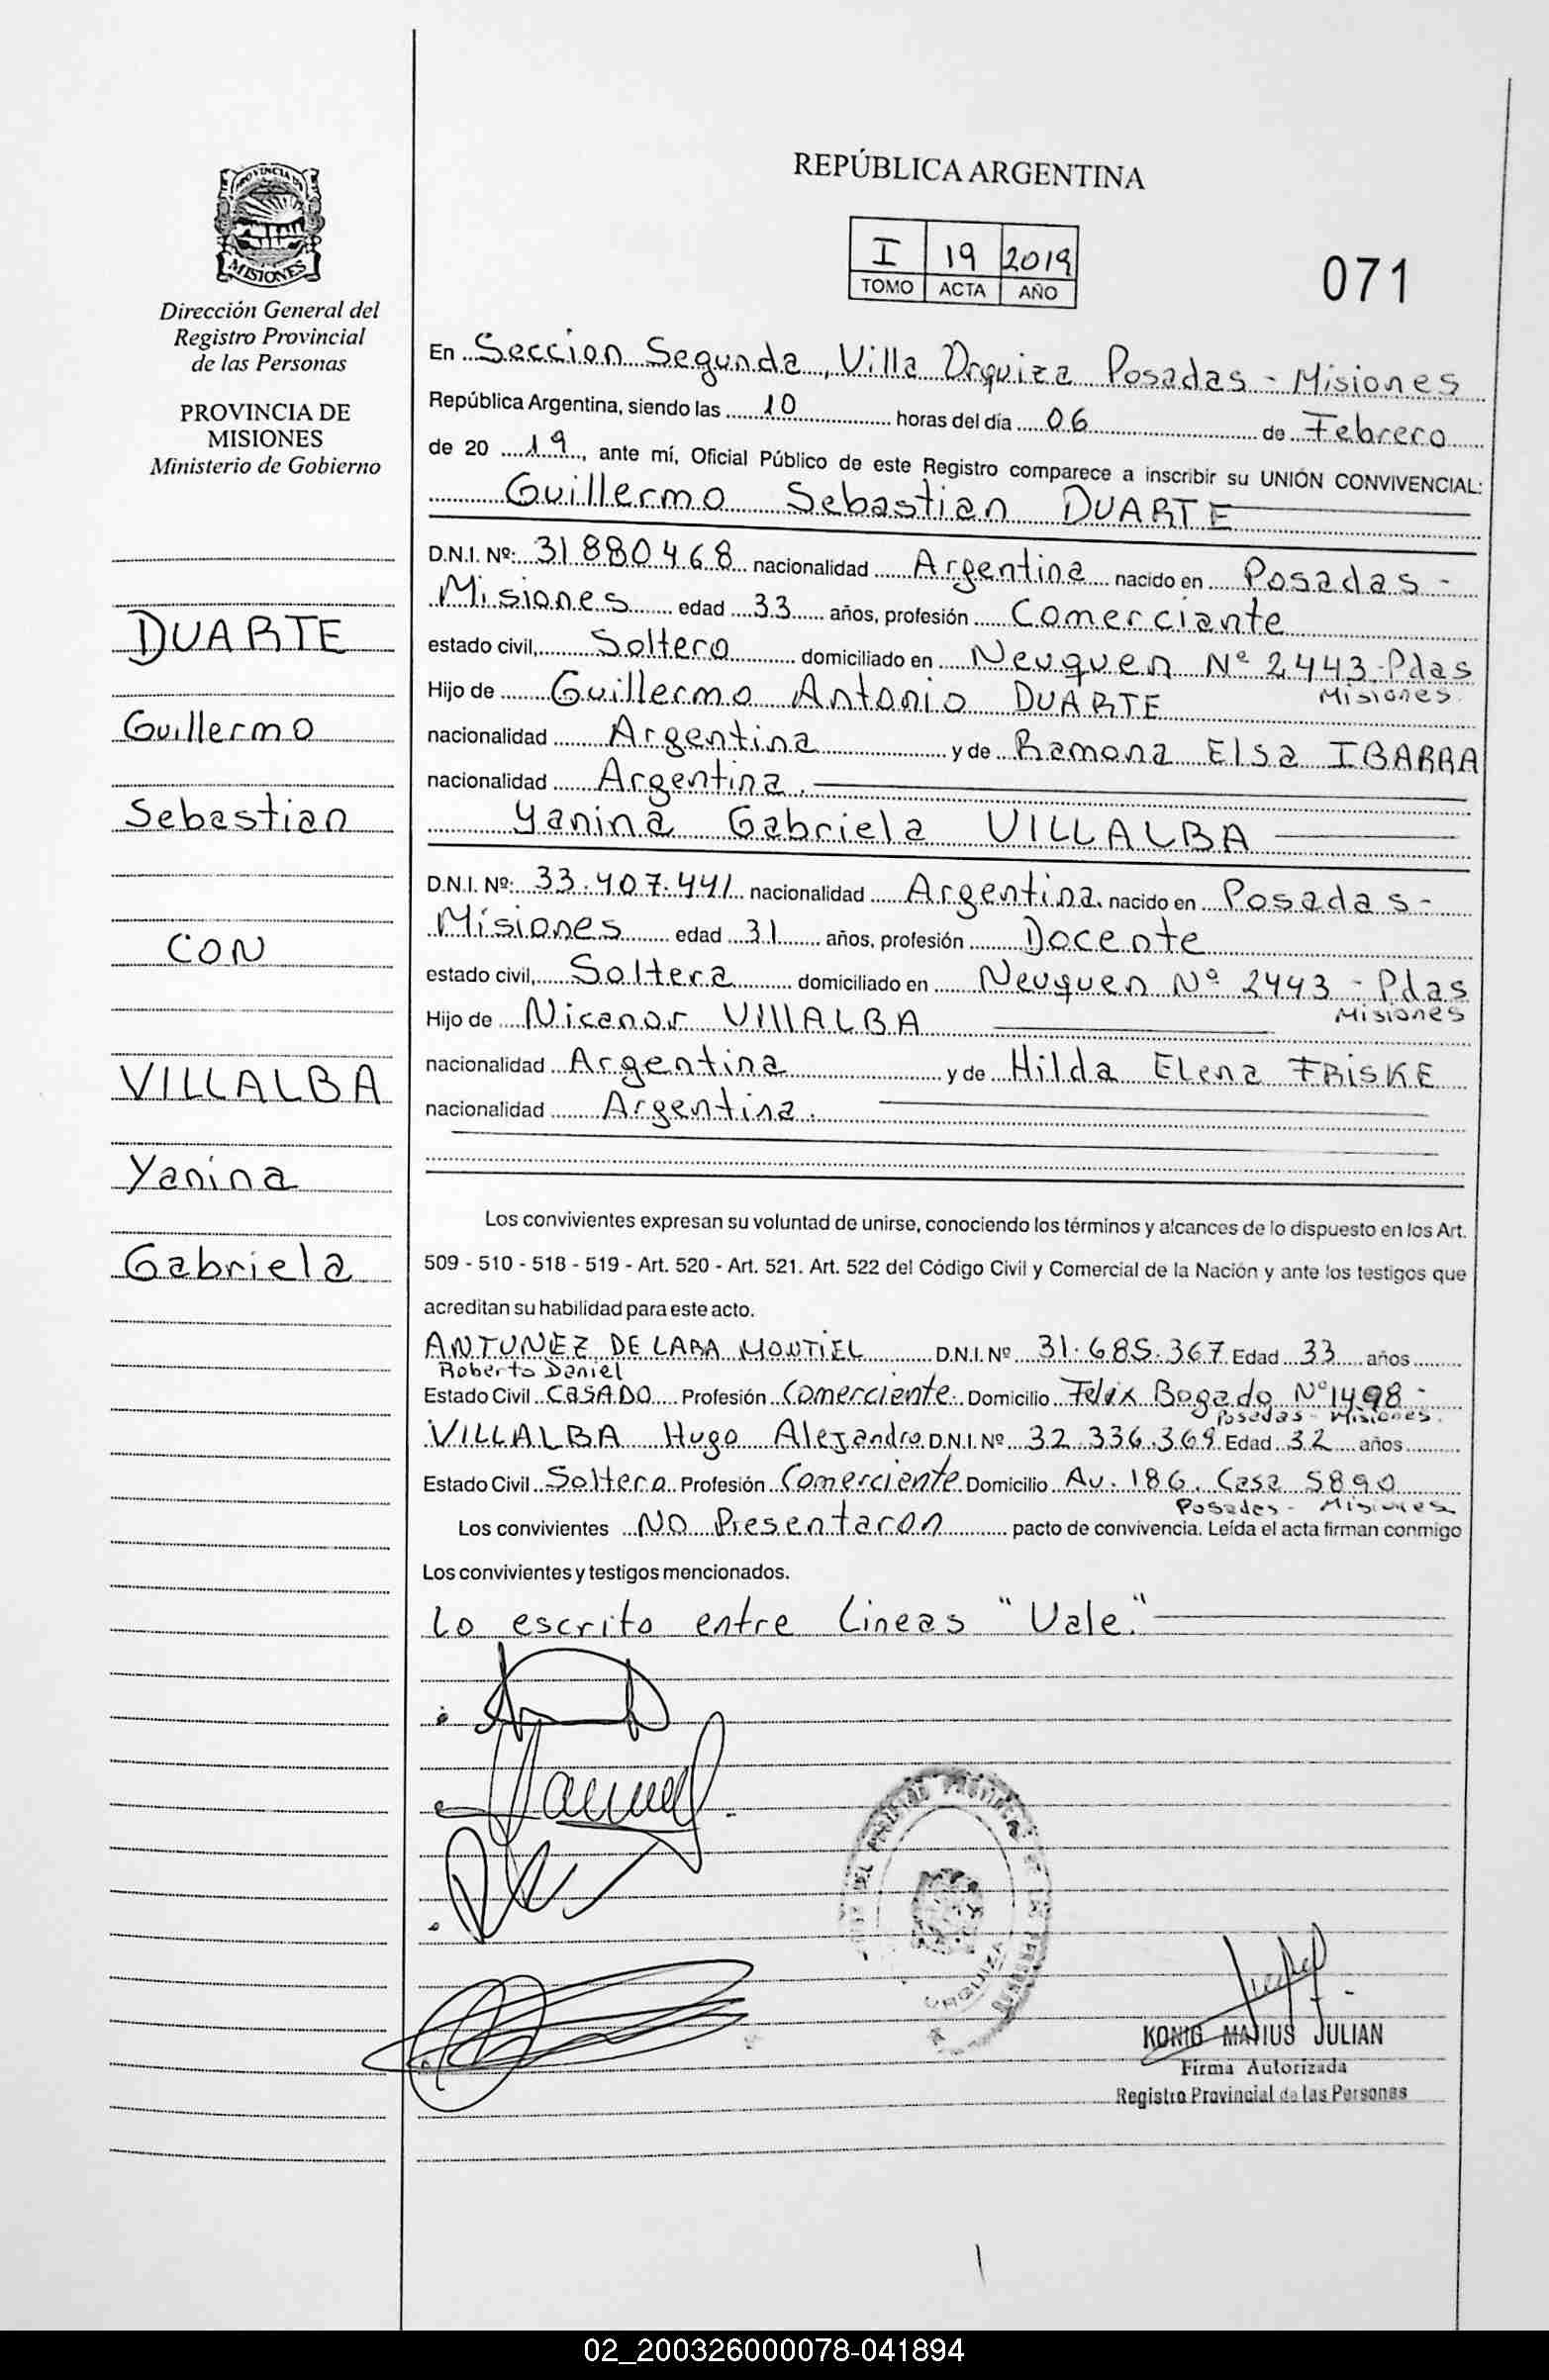 PROVINCIA DE
MISIONES
Dirección General del
Registro Provincial
de las Personas
PROVINCIA DE
MISIONES
Ministerio de Gobierno
DUARTE
Guillermo
Sebastian
CON
VILLALBA
Yanina
Gabriela
REPÚBLICA ARGENTINA
I 19 2019
TOMO ACTA AÑO
071
En Seccion Segunda, Villa Urquiza Posadas - Misiones
República Argentina, siendo las 10 horas del día 06 de Febrero
de 20 19, ante mí, Oficial Público de este Registro comparece a inscribir su UNIÓN CONVIVENCIAL:
Guillermo Sebastian DUARTE
D.N.I. Nº: 31.880.468 nacionalidad Argentina nacido en Posadas -
Misiones edad 33 años, profesión Comerciante
estado civil, Soltero domiciliado en Neuquen Nº 2443-Pdas
Misiones.
Hijo de Guillermo Antonio DUARTE
nacionalidad Argentina y de Ramona Elsa IBARRA
nacionalidad Argentina.
Yanina Gabriela VILLALBA
D.N.I. Nº: 33.407.441 nacionalidad Argentina. nacido en Posadas -
Misiones edad 31 años, profesión Docente
estado civil, Soltera domiciliado en Neuquen Nº 2443 - Pdas
Misiones
Hijo de Nicanor VIllALBA
nacionalidad Argentina y de Hilda Elena FRISKE
nacionalidad Argentina.
Los convivientes expresan su voluntad de unirse, conociendo los términos y alcances de lo dispuesto en los Art.
509 - 510 - 518 - 519 - Art. 520 - Art. 521. Art. 522 del Código Civil y Comercial de la Nación y ante los testigos que
acreditan su habilidad para este acto.
ANTUNEZ DE LARA MONTIEL D.N.I. Nº 31.685.367 Edad 33 años
Roberto Daniel
Estado Civil CASADO Profesión Comerciente. Domicilio Felix Bogado Nº 1498 -
Posadas - Misiones.
VILLALBA Hugo Alejandro D.N.I. Nº 32.336.369 Edad 32 años
Estado Civil Soltero Profesión Comerciente Domicilio Av. 186. Casa 5890
Posadas - Misiones
Los convivientes NO Presentaron pacto de convivencia. Leída el acta firman conmigo
Los convivientes y testigos mencionados.
Lo escrito entre lineas "Vale."
URQUIZA
KONIG MATIUS JULIAN
Firma Autorizada
Registro Provincial de las Personas
02_200326000078-041894